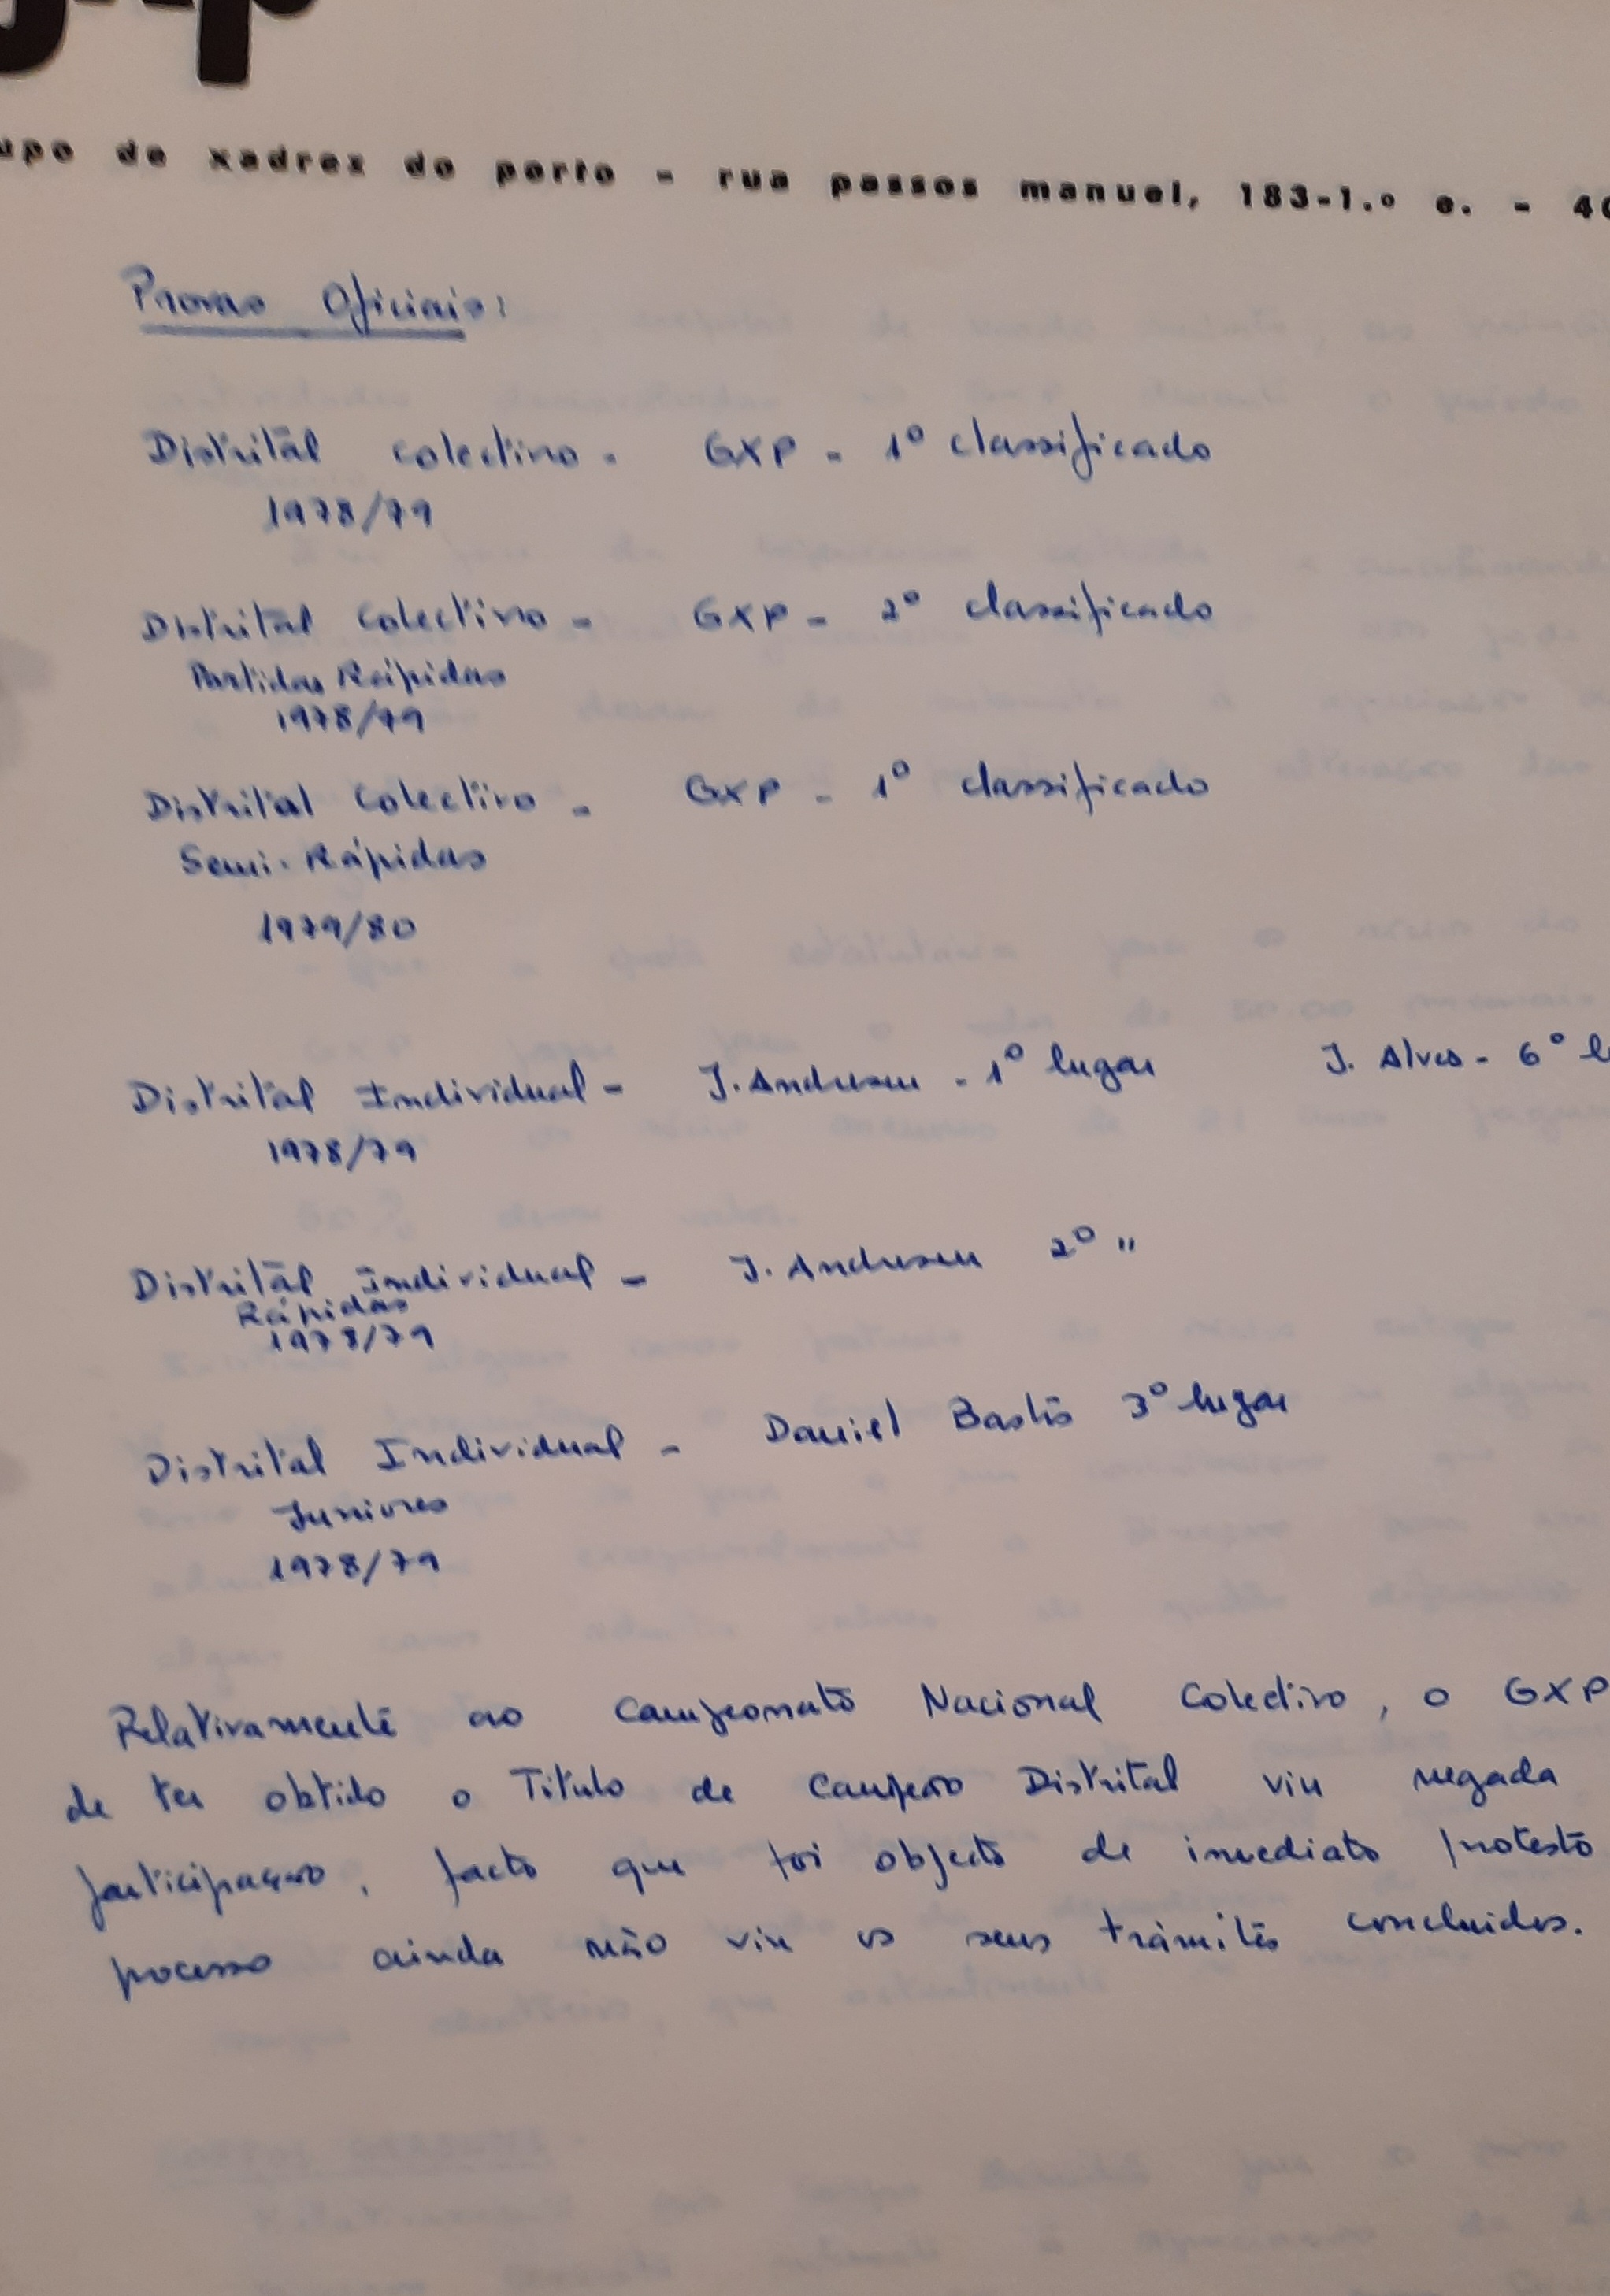 gxp
upo de xadrez do porto - rua passos manuel, 183-1.º e. - 40
Provas Oficiais:
Distrital Colectivo - GXP - 1º classificado
1978/79
Distrital Colectivo - GXP - 2º classificado
Partidas Rápidas
1978/79
Distrital Colectivo - GXP - 1º classificado
Semi-Rápidas
1979/80
Distrital Individual - J. Andresen - 1º lugar J. Alves - 6º l
1978/79
Distrital Individual - J. Andresen 2º "
Rápidas
1978/79
Distrital Individual - Daniel Bastos 3º lugar
Juniores
1978/79
Relativamente ao Campeonato Nacional Colectivo, o GXP
de ter obtido o Título de Campeão Distrital viu negada
participação, facto que foi objecto de imediato protesto
processo ainda não viu os seus trâmites concluidos.